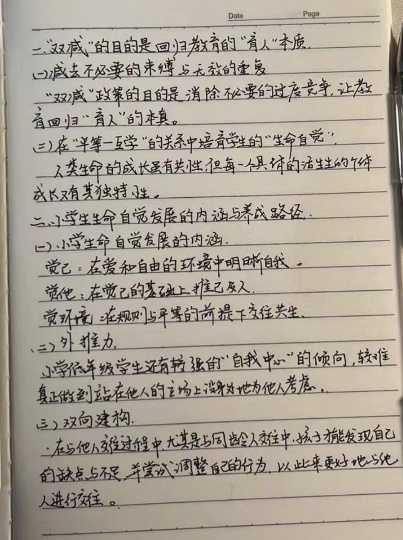 Date Page
一、"双减"的目的是回归教育的"育人"本质.
(一)减去不必要的束缚与无效的重复
"双减"政策的目的是消除不必要的过度竞争,让教
育回归"育人"的本真。
(二)在"平等一互学"的关系中培育学生的"生命自觉".
人类生命的成长虽有共性,但每一个具体的活生生的个体
成长又有其独特性。
二、小学生生命自觉发展的内涵与养成路径.
(一)小学生命自觉发展的内涵.
觉己:在爱和自由的环境中明晰自我。
觉他:在觉己的基础上推己及人.
觉环境:在规则与平等的前提下交往共生.
(二)外推力.
小学低年级学生还有较强的"自我中心"的倾向,较难
真正做到站在他人的立场上设身处地为他人考虑。
(三)双向建构.
在与他人交往过程中尤其是与同龄人交往中,孩子才能发现自己
的缺点与不足,并尝试调整自己的行为,以此来更好地与他
人进行交往。